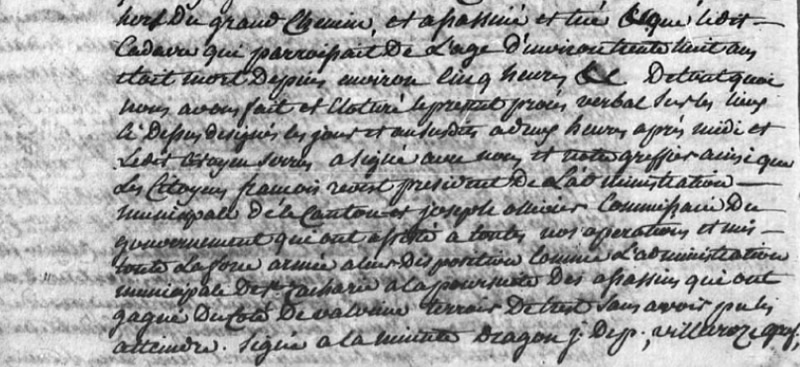 hors du grand chemin, et assassiné et tué que ledit
Cadavre qui parroissait de L'age d'environ trente huit ans
était mort depuis environ cinq heures &c De tout quoi
nous avons fait et Cloturé le present procès verbal sur les lieux
ci dessus designés les jour et an susdits a deux heures après midi et
Ledit Citoyen a signé avec nous et notre greffier ainsi que
Les Citoyens francois president De L'administration
municipale de ce Canton et joseph ollivier Commissaire Du
gouvernement qui ont assisté a toutes nos operations et mis
toute La force armée a leur disposition comme L'administration
municipale De St Zacharie a la poursuite Des assassins qui ont
gagné Du Coté De terroir De Sans avoir pu les
atteindre. Signé a la minute Dragon j. De p.,